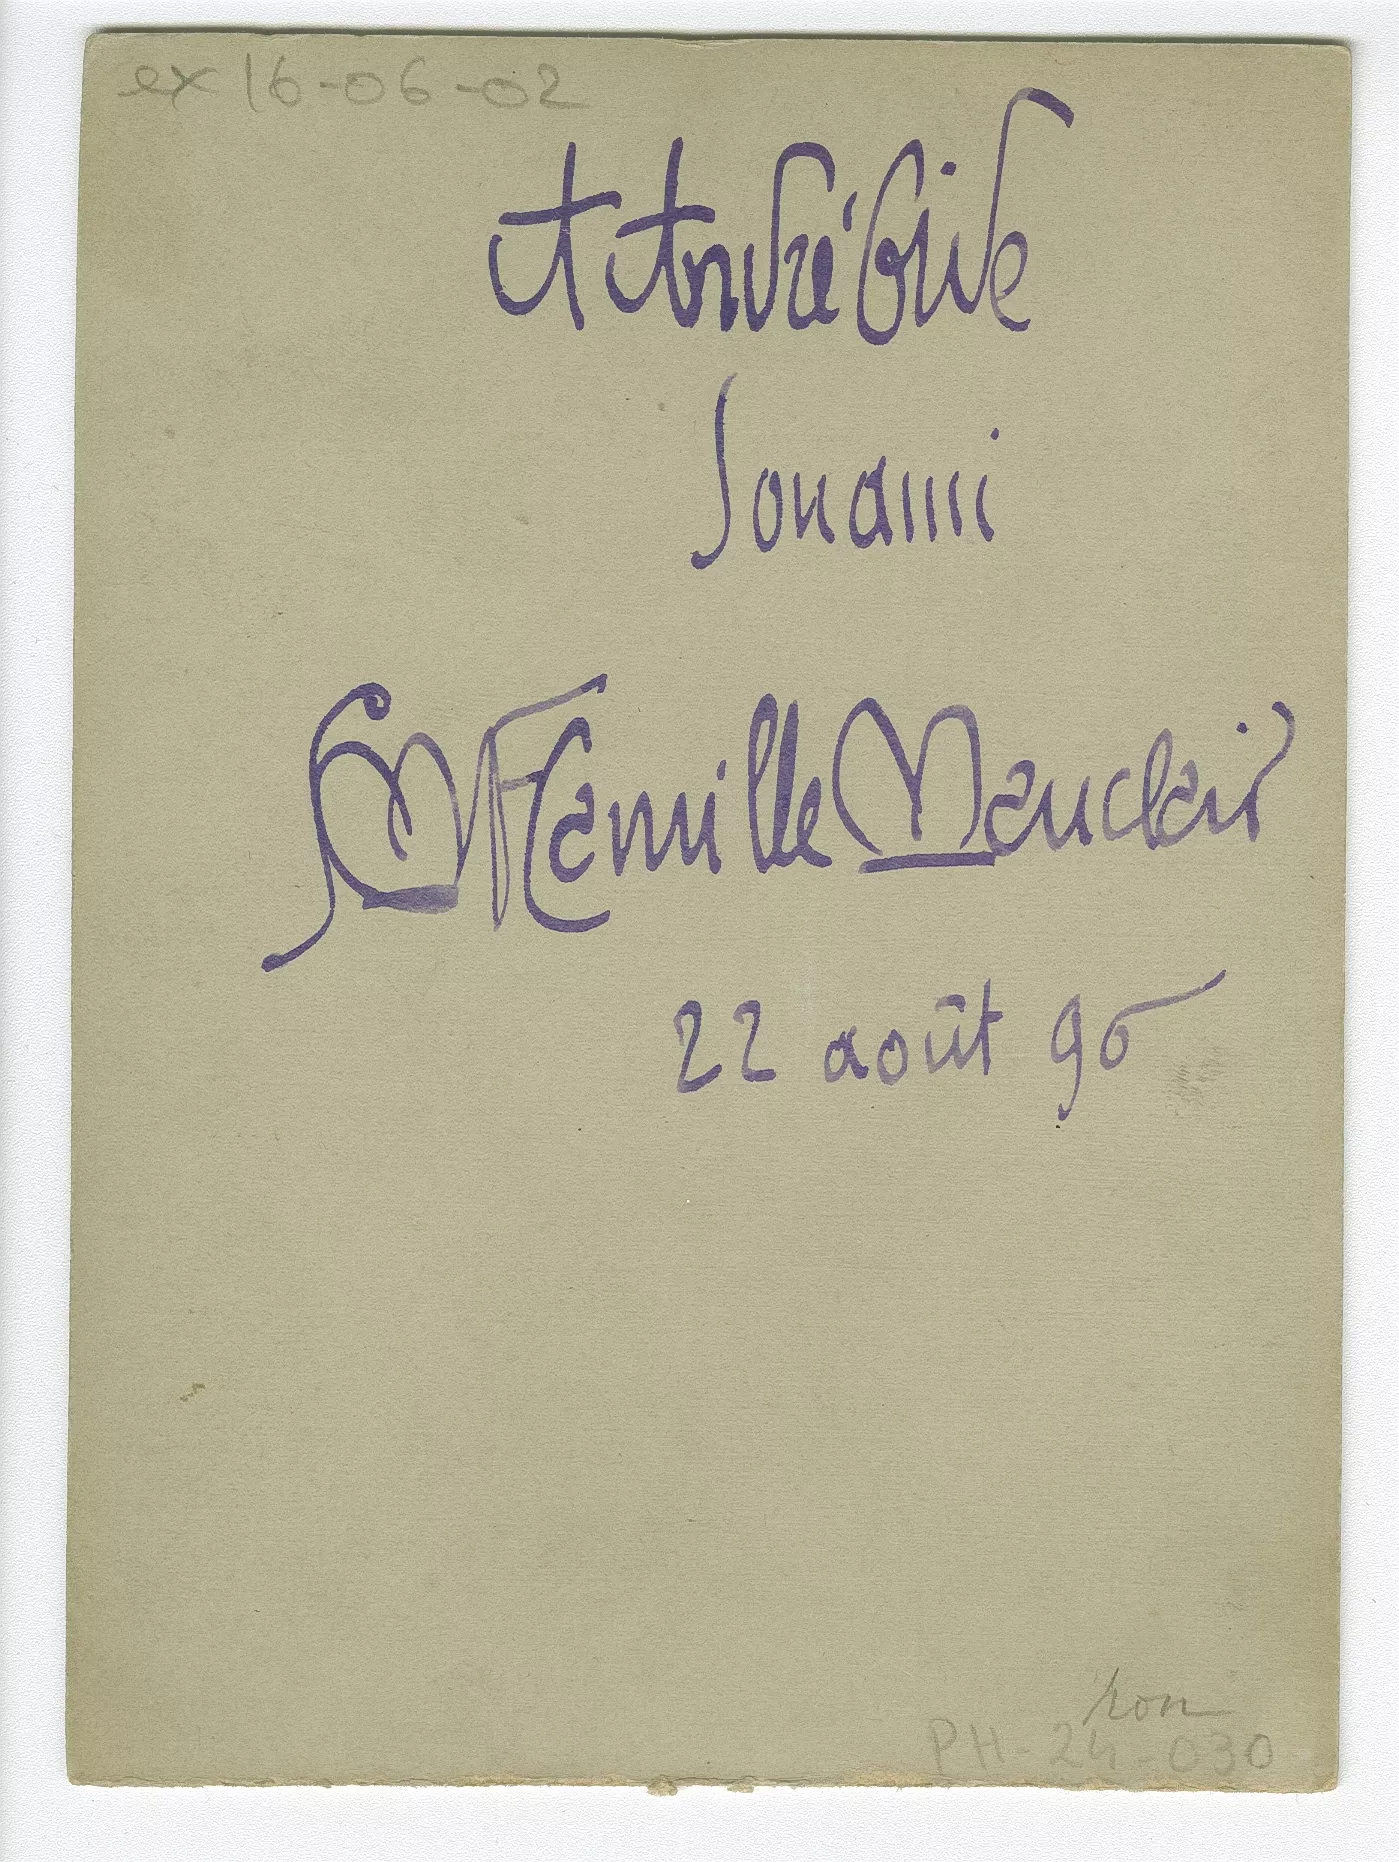 ex 16-06-02
A André Gide
son ami
Camille Mauclair
22 août 96
non
PH-24-030